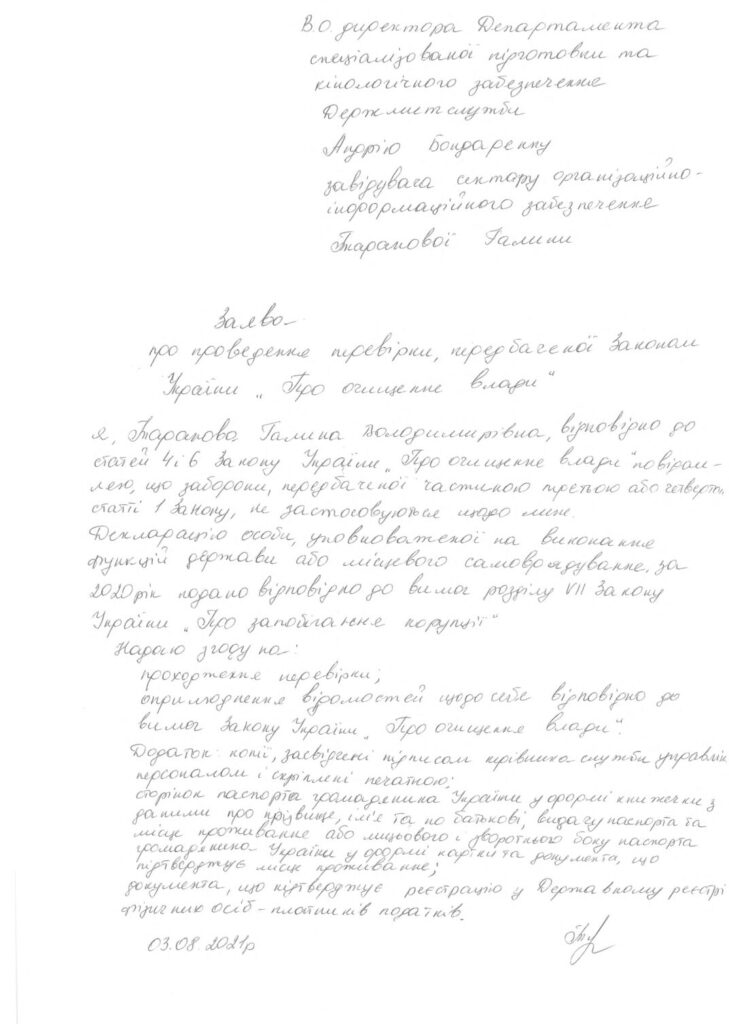 В.о. директора Департамента
спеціалізованої підготовки та
кінологічного забезпечення
Держмитслужби
Андрію Бондаренку
завідувача сектору організаційно-
інформаційного забезпечення
Тарапової Галини
Заява
про проведення перевірки, передбаченої Законом
України „Про очищення влади"
я, Тарапова Галина Володимирівна, відповідно до
статей 4 і 6 Закону України „Про очищення влади" повідом-
ляю, що заборони, передбаченої частиною третьою або четверт.
статті 1 Закону, не застосовуються щодо мене.
Декларацію особи, уповноваженої на виконання
функцій держави або місцевого самоврядування, за
2020 рік подано відповідно до вимог розділу VII Закону
України „Про запобігання корупції"
Надаю згоду на:
проходження перевірки;
оприлюднення відомостей щодо себе відповідно до
вимог Закону України „Про очищення влади".
Додаток: копії, засвідчені підписом керівника служби управлін
персоналом і скріплені печаткою:
сторінок паспорта громадянина України у формі книжечки з
даними про прізвище, ім'я та по батькові, видачу паспорта та
місце проживання або лицьового і зворотнього боку паспорта
громадянина України у формі картки та документа, що
підтверджує місце проживання;
документа, що підтверджує реєстрацію у Державному реєстрі
фізичних осіб - платників податків.
03.08.2021р